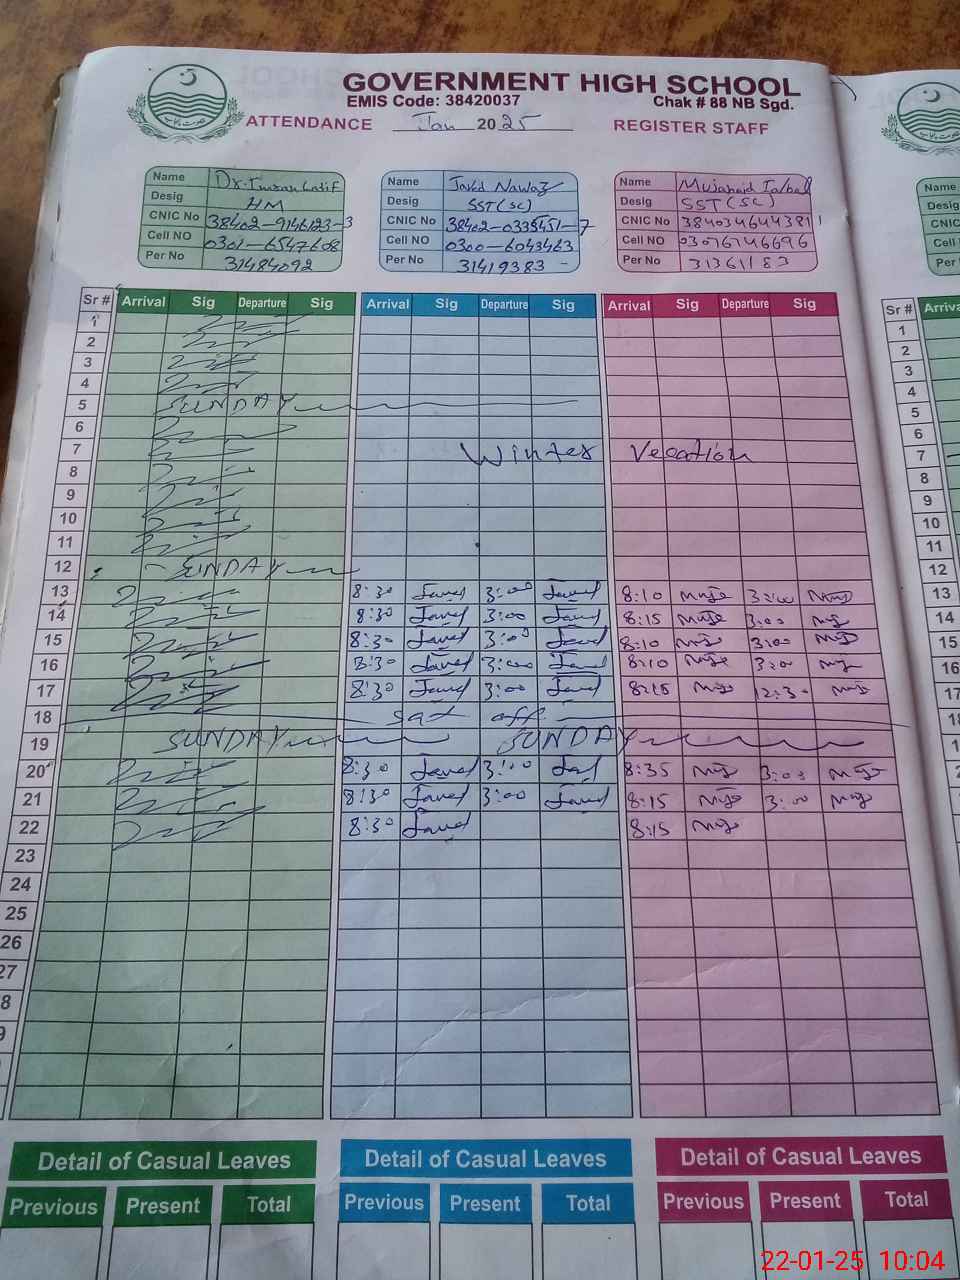 GOVERNMENT HIGH SCHOOL
EMIS Code: 38420037 Chak # 88 NB Sgd.
ATTENDANCE Jan 2025 REGISTER STAFF
Name Dr. Imran Latif Name Javed Nawaz Name Mujahid Iqbal Name
Desig HM Desig SST (SC) Desig SST (SC) Desig
CNIC No 38402-9146123-3 CNIC No 38402-0335451-7 CNIC No 3840346443811
Cell NO 0301-6547608 Cell NO 0300-6043463 Cell NO 03076746696 Cell
Per No 31484092 Per No 31419383 - Per No 31361183 Per No
Sr # Arrival Sig Departure Sig Arrival Sig Departure Sig Arrival Sig Departure Sig Sr #
1 1
2 2
3 3
4 4
5 SUNDAY 5
6 6
7 Winter Vecation 7
8 8
9 9
10 10
11 11
12 SUNDAY 12
13 8:30 Javed 3:00 Javed 8:10 Muje 3:00 Muje 13
14 8:30 Javed 3:00 Javed 8:15 Muje 3:00 Muje 14
15 8:30 Javed 3:00 Javed 8:10 Muje 3:00 Muje 15
16 8:30 Javed 3:00 Javed 8:10 Muje 3:00 Muje 16
17 8:30 Javed 3:00 Javed 8:15 Muje 12:30 Muje 17
18 Sat off
19 SUNDAY SUNDAY
20 8:30 Javed 3:00 Javed 8:35 Muje 3:00 Muje
21 8:30 Javed 3:00 Javed 8:15 Muje 3:00 Muje
22 8:30 Javed 8:15 Muje
23
24
25
26
27
8
9
Detail of Casual Leaves Detail of Casual Leaves Detail of Casual Leaves
Previous Present Total Previous Present Total Previous Present Total
22-01-25 10:04